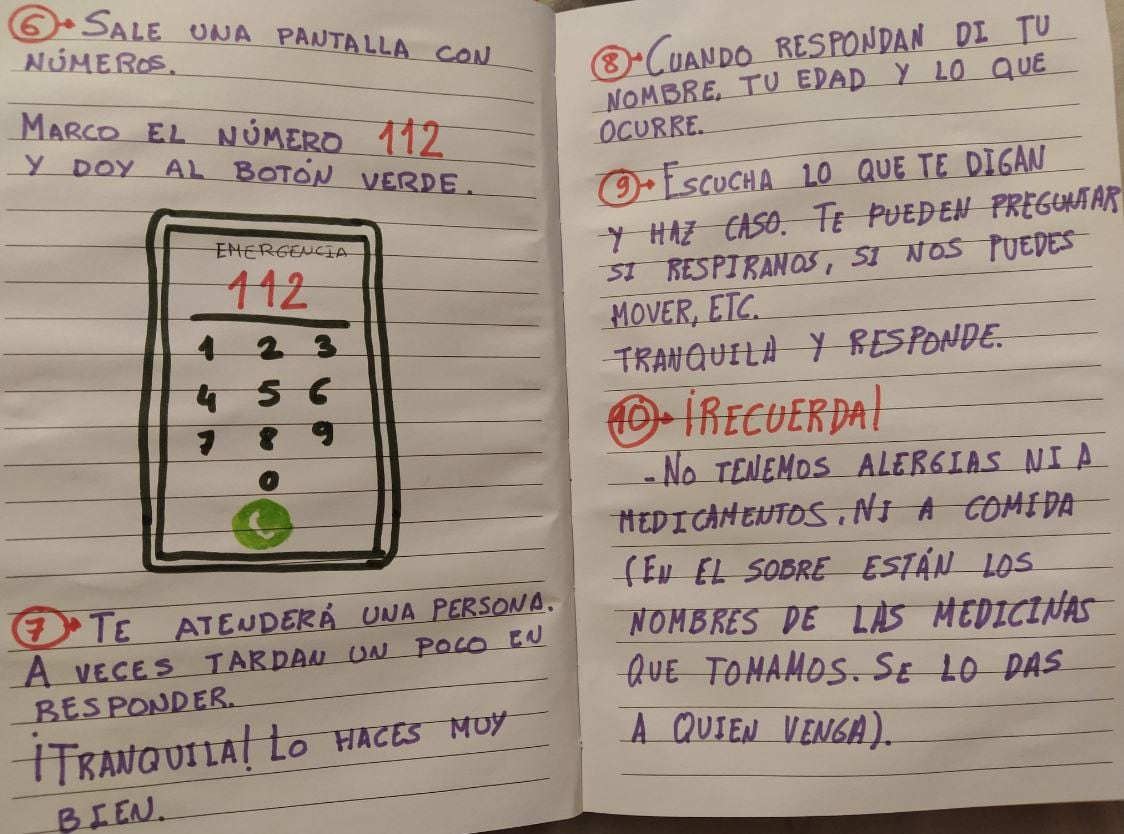 6 SALE UNA PANTALLA CON
NÚMEROS.
MARCO EL NÚMERO 112
Y DOY AL BOTÓN VERDE.
EMERGENCIA
112
1 2 3
4 5 6
7 8 9
0
7 TE ATENDERÁ UNA PERSONA.
A VECES TARDAN UN POCO EN
RESPONDER.
¡TRANQUILA! LO HACES MUY
BIEN.
8 CUANDO RESPONDAN DI TU
NOMBRE, TU EDAD Y LO QUE
OCURRE.
9 ESCUCHA LO QUE TE DIGAN
Y HAZ CASO. TE PUEDEN PREGUNTAR
SI RESPIRAMOS, SI NOS PUEDES
MOVER, ETC.
TRANQUILA Y RESPONDE.
10 ¡RECUERDA!
- NO TENEMOS ALERGIAS NI A
MEDICAMENTOS. NI A COMIDA
(EN EL SOBRE ESTÁN LOS
NOMBRES DE LAS MEDICINAS
QUE TOMAMOS. SE LO DAS
A QUIEN VENGA).